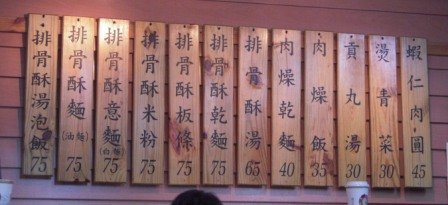 蝦仁肉圓 45
燙青菜 30
貢丸湯 30
肉燥飯 35
肉燥乾麵 40
排骨酥湯 65
排骨酥乾麵 75
排骨酥板條 75
排骨酥米粉 75
排骨酥意麵(白麵) 75
排骨酥麵(油麵) 75
排骨酥湯泡飯 75